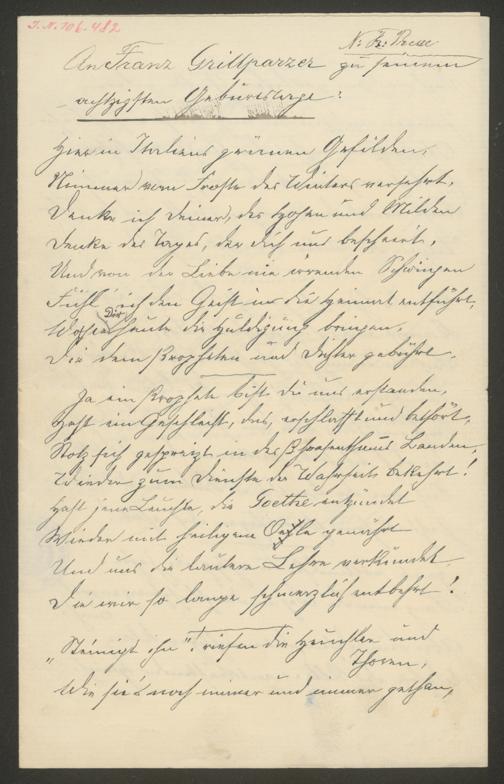 I. N. 106.482
N. Fr. Presse
An Franz Grillparzer zu seinem
achtzigsten Geburtstage:
Hier in Italiens grünen Gefilden,
Nimmer vom Froste des Winters versehrt,
Denke ich Deiner, des Hohen und Milden
Denke des Tages, der dich uns bescheert,
Und von der Liebe nie irrenden Schwingen
Fühl' ich den Geist in die Heimat entführt,
Dir heute die Huldigung bringen,
Die dem Propheten und Dichter gebührt.
Ja ein Prophete bist du uns erstanden,
Hast ein Geschlecht, das, erschlafft und bethört,
Stolz sich gespreizt in des Landen,
Wieder zum Dienste der Wahrheit bekehrt!
Hast jene Leuchte, die Goethe entzündet
Wieder mit heiligem Oele genährt
Und uns die lautere Lehre verkündet
Die wir so lange schmerzlich entbehrt!
„Steinigt ihn"! riefen die Heuchler und
Thoren,
Wie sie's noch immer und immer gethan,